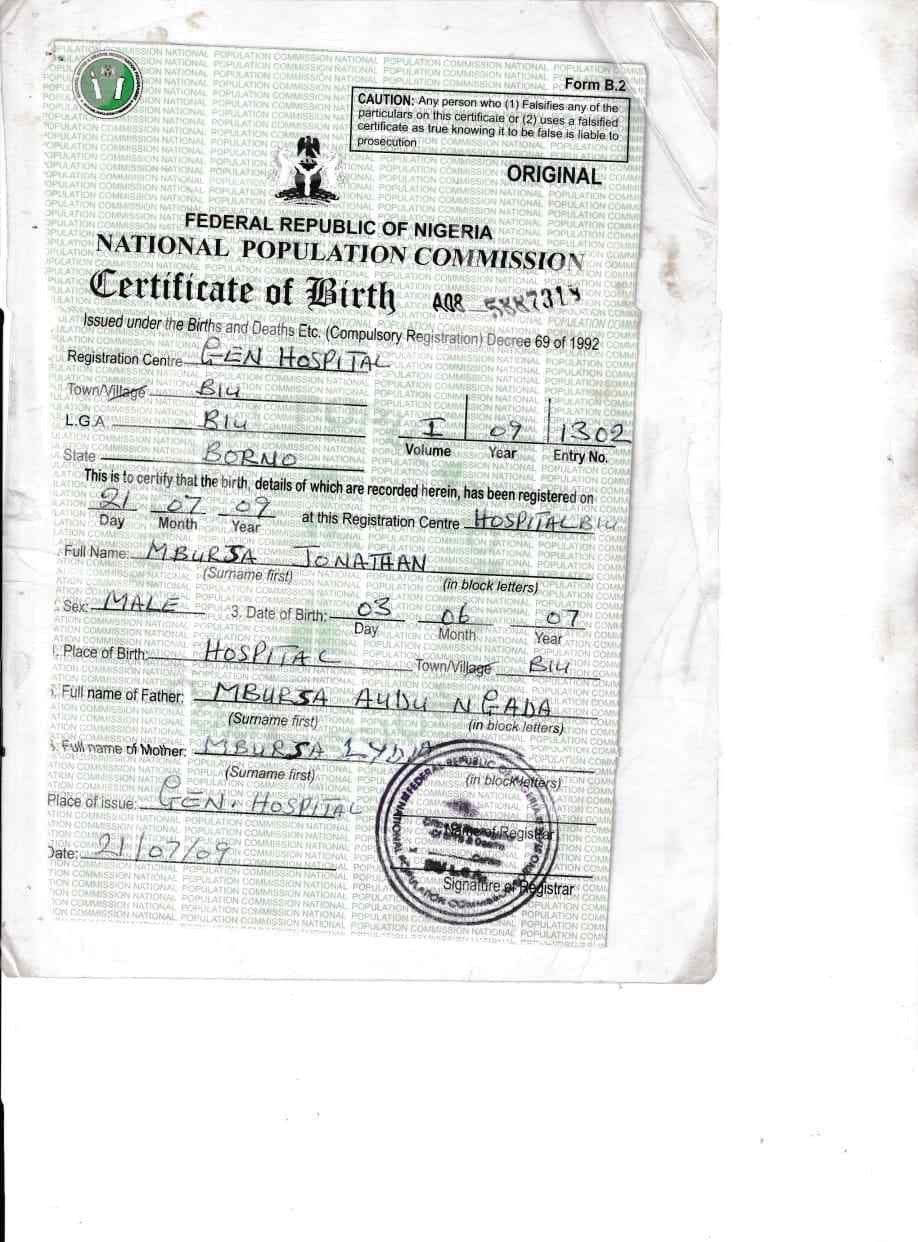 Form B.2
CAUTION: Any person who (1) Falsifies any of the
particulars on this certificate or (2) uses a falsified
certificate as true knowing it to be false is liable to
prosecution
ORIGINAL
FEDERAL REPUBLIC OF NIGERIA
NATIONAL POPULATION COMMISSION
Certificate of Birth A08
Issued under the Births and Deaths Etc. (Compulsory Registration) Decree 69 of 1992
Registration Centre GEN HOSPITAL
Town/Village BIU
L.G.A. BIU
I 09 1302
Volume Year Entry No.
State BORNO
This is to certify that the birth, details of which are recorded herein, has been registered on
21 07 09 at this Registration Centre HOSPITAL BIU
Day Month Year
Full Name: MBURSA JONATHAN
(Surname first) (in block letters)
Sex: MALE 3. Date of Birth: 03 06 07
Day Month Year
Place of Birth: HOSPITAL Town/Village BIU
Full name of Father: MBURSA AUDU NGADA
(Surname first) (in block letters)
Full name of Mother: MBURSA LYDIA
(Surname first) (in block letters)
Place of issue: GEN. HOSPITAL
of Registrar
Date: 21/07/09
Signature of Registrar